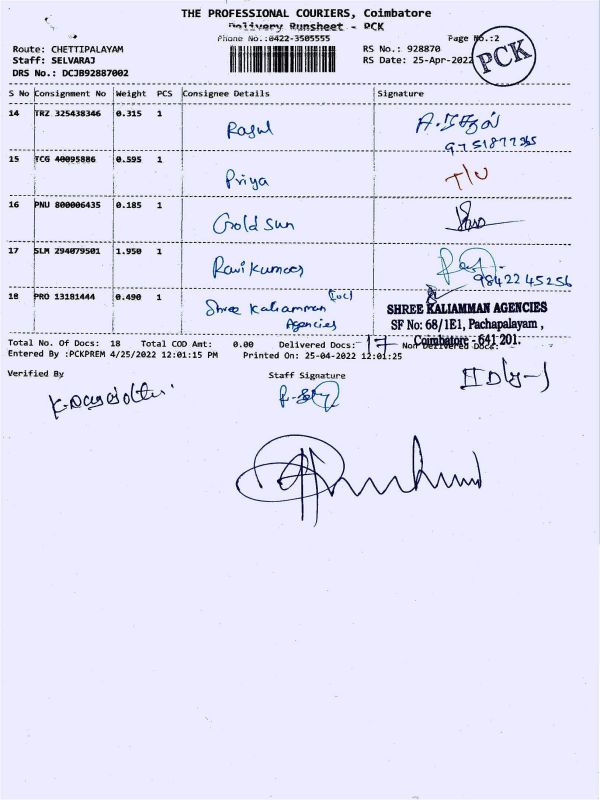 THE PROFESSIONAL COURIERS, Coimbatore
Delivery Runsheet - PCK
Phone No.:0422-3505555
Page No.:2
PCK
Route: CHETTIPALAYAM
RS No.: 928870
Staff: SELVARAJ
RS Date: 25-Apr-2022
DRS No.: DCJB92887002
S No Consignment No Weight PCS Consignee Details Signature
14 TRZ 325438346 0.315 1 Rahul
15 TCG 40095886 0.595 1 Priya T/U
16 PNU 800006435 0.185 1 Gold sun
17 SLM 294079501 1.950 1 Ravi kumar
9842245256
18 PRO 13181444 0.490 1 Shree Kaliamman
Agencies
SHREE KALIAMMAN AGENCIES
SF No: 68/1E1, Pachapalayam,
Coimbatore - 641 201.
Total No. Of Docs: 18 Total COD Amt: 0.00 Delivered Docs: 17 Non Delivered Docs:
Entered By :PCKPREM 4/25/2022 12:01:15 PM Printed On: 25-04-2022 12:01:25
Verified By Staff Signature